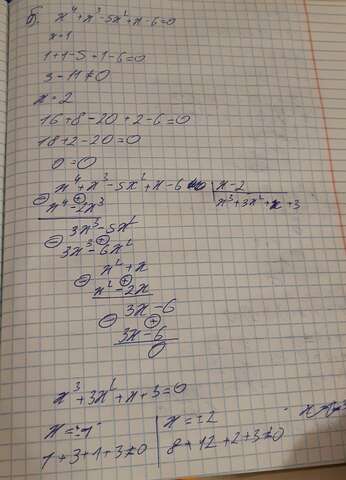 б) x⁴+x³-5x²+x-6=0
x=1
1+1-5+1-6=0
3-11≠0
x=2
16+8-20+2-6=0
18+2-20=0
0=0
x⁴+x³-5x²+x-6 | x-2
x⁴-2x³ | x³+3x²+x+3
3x³-5x²
3x³-6x²
x²+x
x²-2x
3x-6
3x-6
0
x³+3x²+x+3=0
x=1 | x=2
1+3+1+3≠0 | 8+12+2+3≠0